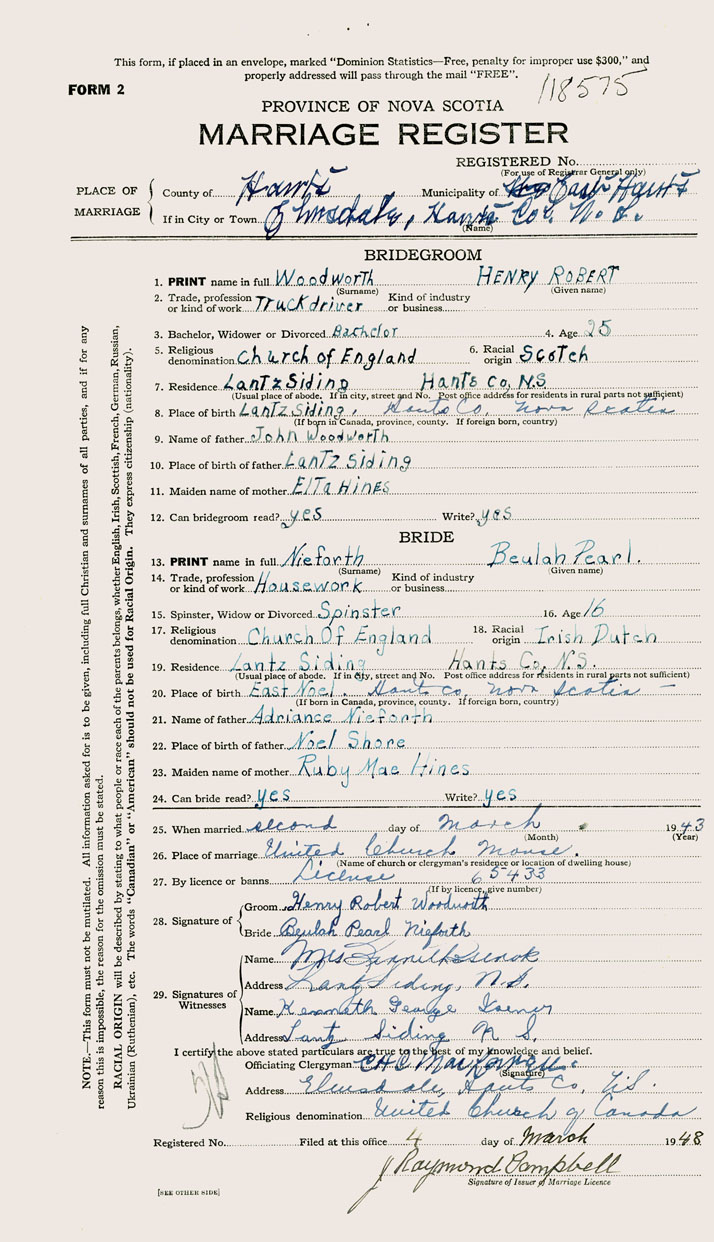 This form, if placed in an envelope, marked "Dominion Statistics—Free, penalty for improper use $300," and
properly addressed will pass through the mail "FREE".
FORM 2
118575
PROVINCE OF NOVA SCOTIA
MARRIAGE REGISTER
REGISTERED No.
(For use of Registrar General only)
PLACE OF MARRIAGE
County of Hants Municipality of East Hants
If in City or Town Elmsdale, Hants Co. N. S.
(Name)
BRIDEGROOM
1. PRINT name in full Woodworth HENRY ROBERT
(Surname) (Given name)
2. Trade, profession or kind of work Truckdriver Kind of industry or business
3. Bachelor, Widower or Divorced Bachelor 4. Age 25
5. Religious denomination Church of England 6. Racial origin Scotch
7. Residence Lantz Siding Hants Co, N.S
(Usual place of abode. If in city, street and No. Post office address for residents in rural parts not sufficient)
8. Place of birth Lantz Siding, Hants Co, Nova Scotia
(If born in Canada, province, county. If foreign born, country)
9. Name of father John Woodworth
10. Place of birth of father Lantz Siding
11. Maiden name of mother Elta Hines
12. Can bridegroom read? yes Write? yes
BRIDE
13. PRINT name in full Nieforth Beulah Pearl.
(Surname) (Given name)
14. Trade, profession or kind of work Housework Kind of industry or business
15. Spinster, Widow or Divorced Spinster 16. Age 16
17. Religious denomination Church Of England 18. Racial origin Irish Dutch
19. Residence Lantz Siding Hants Co, N.S.
(Usual place of abode. If in city, street and No. Post office address for residents in rural parts not sufficient)
20. Place of birth East Noel. Hants Co, Nova Scotia —
(If born in Canada, province, county. If foreign born, country)
21. Name of father Adriance Nieforth
22. Place of birth of father Noel Shore
23. Maiden name of mother Ruby Mae Hines
24. Can bride read? yes Write? yes
25. When married second day of March 1943
(Month) (Year)
26. Place of marriage United Church Manse.
(Name of church or clergyman's residence or location of dwelling house)
27. By licence or banns License 65433
(If by licence, give number)
28. Signature of
Groom Henry Robert Woodworth
Bride Beulah Pearl Nieforth
29. Signatures of Witnesses
Name Mrs
Address Lantz Siding, N.S.
Name Kenneth George
Address Lantz Siding N S.
I certify the above stated particulars are true to the best of my knowledge and belief.
Officiating Clergyman
(Signature)
Address Elmsdale, Hants Co, N.S.
Religious denomination United Church of Canada
Registered No. Filed at this office 4 day of March 1948
J Raymond Campbell
Signature of Issuer of Marriage Licence
[SEE OTHER SIDE]
NOTE.—This form must not be mutilated. All information asked for is to be given, including full Christian and surnames of all parties, and if for any
reason this is impossible, the reason for the omission must be stated.
RACIAL ORIGIN will be described by stating to what people or race each of the parents belongs, whether English, Irish, Scottish, French, German, Russian,
Ukrainian (Ruthenian), etc. The words "Canadian" or "American" should not be used for Racial Origin. They express citizenship (nationality).